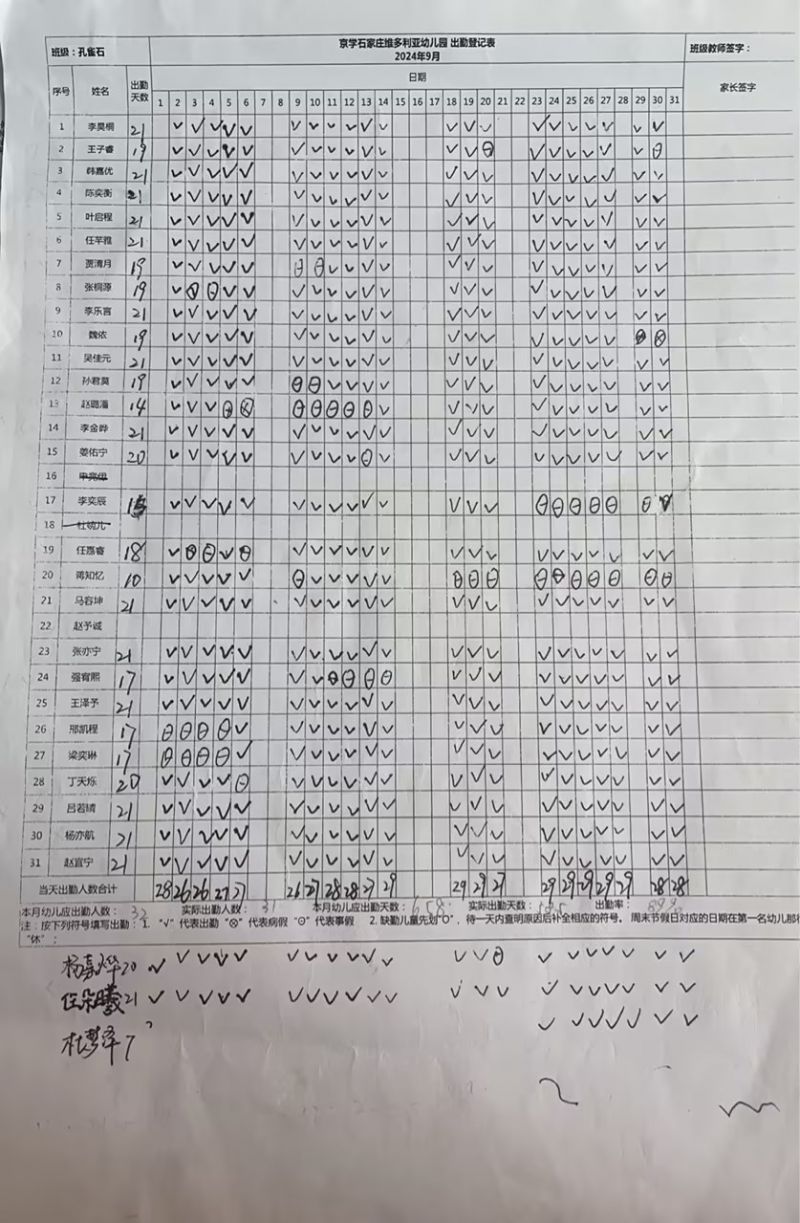 京学石家庄维多利亚幼儿园 出勤登记表
班级：孔雀石 2024年9月 班级教师签字：
序号 姓名 出勤天数 日期 家长签字
1 2 3 4 5 6 7 8 9 10 11 12 13 14 15 16 17 18 19 20 21 22 23 24 25 26 27 28 29 30 31
1 李昊桐 21 √ √ √ √ √ √ √ √ √ √ √ √ √ √ √ √ √ √ √ √ √
2 王子睿 19 √ √ √ √ √ √ √ √ √ √ √ √ √ Θ √ √ √ √ √ √ Θ
3 韩嘉优 21 √ √ √ √ √ √ √ √ √ √ √ √ √ √ √ √ √ √ √ √ √
4 陈奕衡 21 √ √ √ √ √ √ √ √ √ √ √ √ √ √ √ √ √ √ √ √ √
5 叶启程 21 √ √ √ √ √ √ √ √ √ √ √ √ √ √ √ √ √ √ √ √ √
6 任芊雅 21 √ √ √ √ √ √ √ √ √ √ √ √ √ √ √ √ √ √ √ √ √
7 贾清月 19 √ √ √ √ √ Θ Θ √ √ √ √ √ √ √ √ √ √ √ √ √ √
8 张桐源 19 √ Θ Θ √ √ √ √ √ √ √ √ √ √ √ √ √ √ √ √ √ √
9 李乐言 21 √ √ √ √ √ √ √ √ √ √ √ √ √ √ √ √ √ √ √ √ √
10 魏依 19 √ √ √ √ √ √ √ √ √ √ √ √ √ √ √ √ √ √ √ Θ Θ
11 吴佳元 21 √ √ √ √ √ √ √ √ √ √ √ √ √ √ √ √ √ √ √ √ √
12 孙君昊 19 √ √ √ √ √ Θ Θ √ √ √ √ √ √ √ √ √ √ √ √ √ √
13 赵璐潘 14 √ √ √ Θ ⊗ Θ Θ Θ Θ Θ √ √ √ √ √ √ √ √ √ √ √
14 李金晔 21 √ √ √ √ √ √ √ √ √ √ √ √ √ √ √ √ √ √ √ √ √
15 姜佑宁 20 √ √ √ √ √ √ √ √ √ Θ √ √ √ √ √ √ √ √ √ √ √
16
17 李奕辰 √ √ √ √ √ √ √ √ √ √ √ √ √ √ Θ Θ Θ Θ Θ Θ √
18 杜婉儿
19 任嘉睿 18 √ Θ Θ √ Θ √ √ √ √ √ √ √ √ √ √ √ √ √ √ √ √
20 蒋知忆 10 √ √ √ √ √ Θ √ √ √ √ √ Θ Θ Θ Θ Θ Θ Θ Θ Θ Θ
21 马容坤 21 √ √ √ √ √ √ √ √ √ √ √ √ √ √ √ √ √ √ √ √ √
22 赵予诚
23 张亦宁 21 √ √ √ √ √ √ √ √ √ √ √ √ √ √ √ √ √ √ √ √ √
24 强宥熙 17 √ √ √ √ √ √ √ Θ Θ Θ Θ √ √ √ √ √ √ √ √ √ √
25 王泽予 21 √ √ √ √ √ √ √ √ √ √ √ √ √ √ √ √ √ √ √ √ √
26 邢凯程 17 Θ Θ Θ Θ √ √ √ √ √ √ √ √ √ √ √ √ √ √ √ √ √
27 梁奕琳 17 Θ Θ Θ Θ √ √ √ √ √ √ √ √ √ √ √ √ √ √ √ √ √
28 丁天烁 20 √ √ √ √ Θ √ √ √ √ √ √ √ √ √ √ √ √ √ √ √ √
29 吕若晴 21 √ √ √ √ √ √ √ √ √ √ √ √ √ √ √ √ √ √ √ √ √
30 杨亦航 21 √ √ √ √ √ √ √ √ √ √ √ √ √ √ √ √ √ √ √ √ √
31 赵宜宁 21 √ √ √ √ √ √ √ √ √ √ √ √ √ √ √ √ √ √ √ √ √
当天出勤人数合计 28 26 26 27 27 26 27 28 28 27 29 29 29 27 29 29 29 29 29 28 28
本月幼儿应出勤人数： 32 实际出勤人数： 31 本月幼儿应出勤天数： 658 实际出勤天数： 出勤率：
注：按下列符号填写出勤： 1. “√” 代表出勤 “⊗” 代表病假 “⊙” 代表事假 2. 缺勤儿童先划“O”，待一天内查明原因后补全相应的符号。 周末节假日对应的日期在第一名幼儿那
“休”；
杨嘉烨 20 √ √ √ √ √ √ √ √ √ √ √ √ √ Θ √ √ √ √ √ √ √
任朵曦 21 √ √ √ √ √ √ √ √ √ √ √ √ √ √ √ √ √ √ √ √ √
杜梦泽 7 √ √ √ √ √ √ √